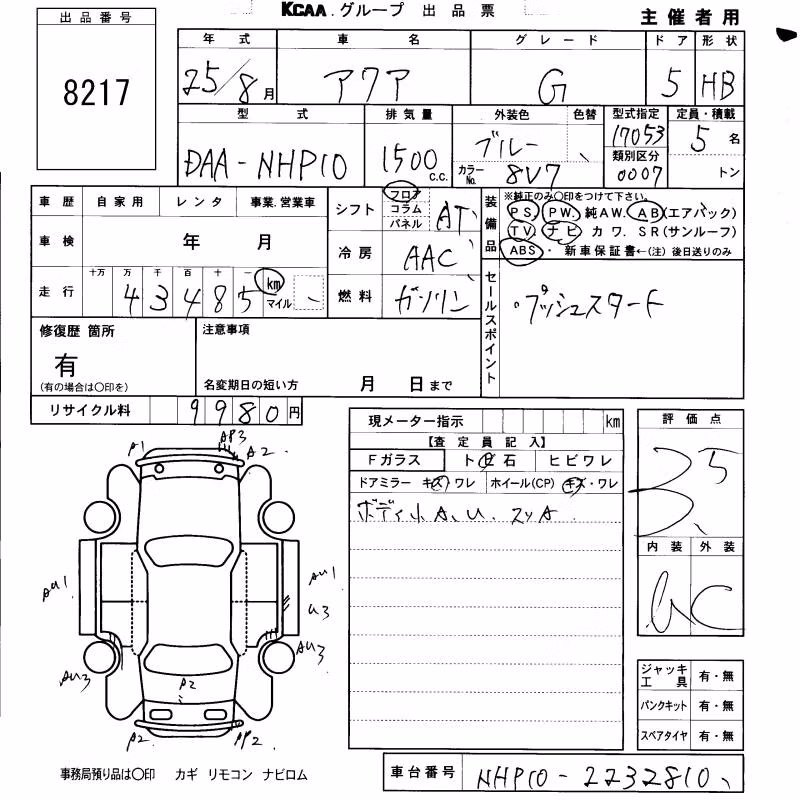 出品番号
8217
KCAA.グループ 出品票
主催者用
年式 車名 グレード ドア 形状
25/8月 アクア G 5 HB
型式 排気量 外装色 色替 型式指定 定員・積載
DAA-NHP10 1500c.c. ブルー 17053 5名
カラーNo. 8V7 類別区分 0007 トン
車歴 自家用 レンタ 事業.営業車
車検 年 月
走行 十万 万 千 百 十 一
43485 km マイル
シフト フロア コラム パネル AT
冷房 AAC
燃料 ガソリン
装備品
※純正のみ○印をつけて下さい。
PS. PW. 純AW. AB(エアバック)
TV ナビ カワ. SR(サンルーフ)
ABS・新車保証書←(注)後日送りのみ
セールスポイント
・プッシュスタート
修復歴 箇所
有
(有の場合は○印を)
注意事項
名変期日の短い方 月 日まで
リサイクル料 9980円
現メーター指示 km
【査定員記入】
Fガラス トビ石 ヒビワレ
ドアミラー キズ・ワレ ホイール(CP) キズ・ワレ
ボディ小A、U. スリA
評価点
3.5
内装 外装
C
A1 AP3 A2
AU1 AU1
U3
AU3 AU3
A2
A2 AP2
ジャッキ工具 有・無
パンクキット 有・無
スペアタイヤ 有・無
事務局預り品は○印 カギ リモコン ナビロム
車台番号 NHP10-2232810